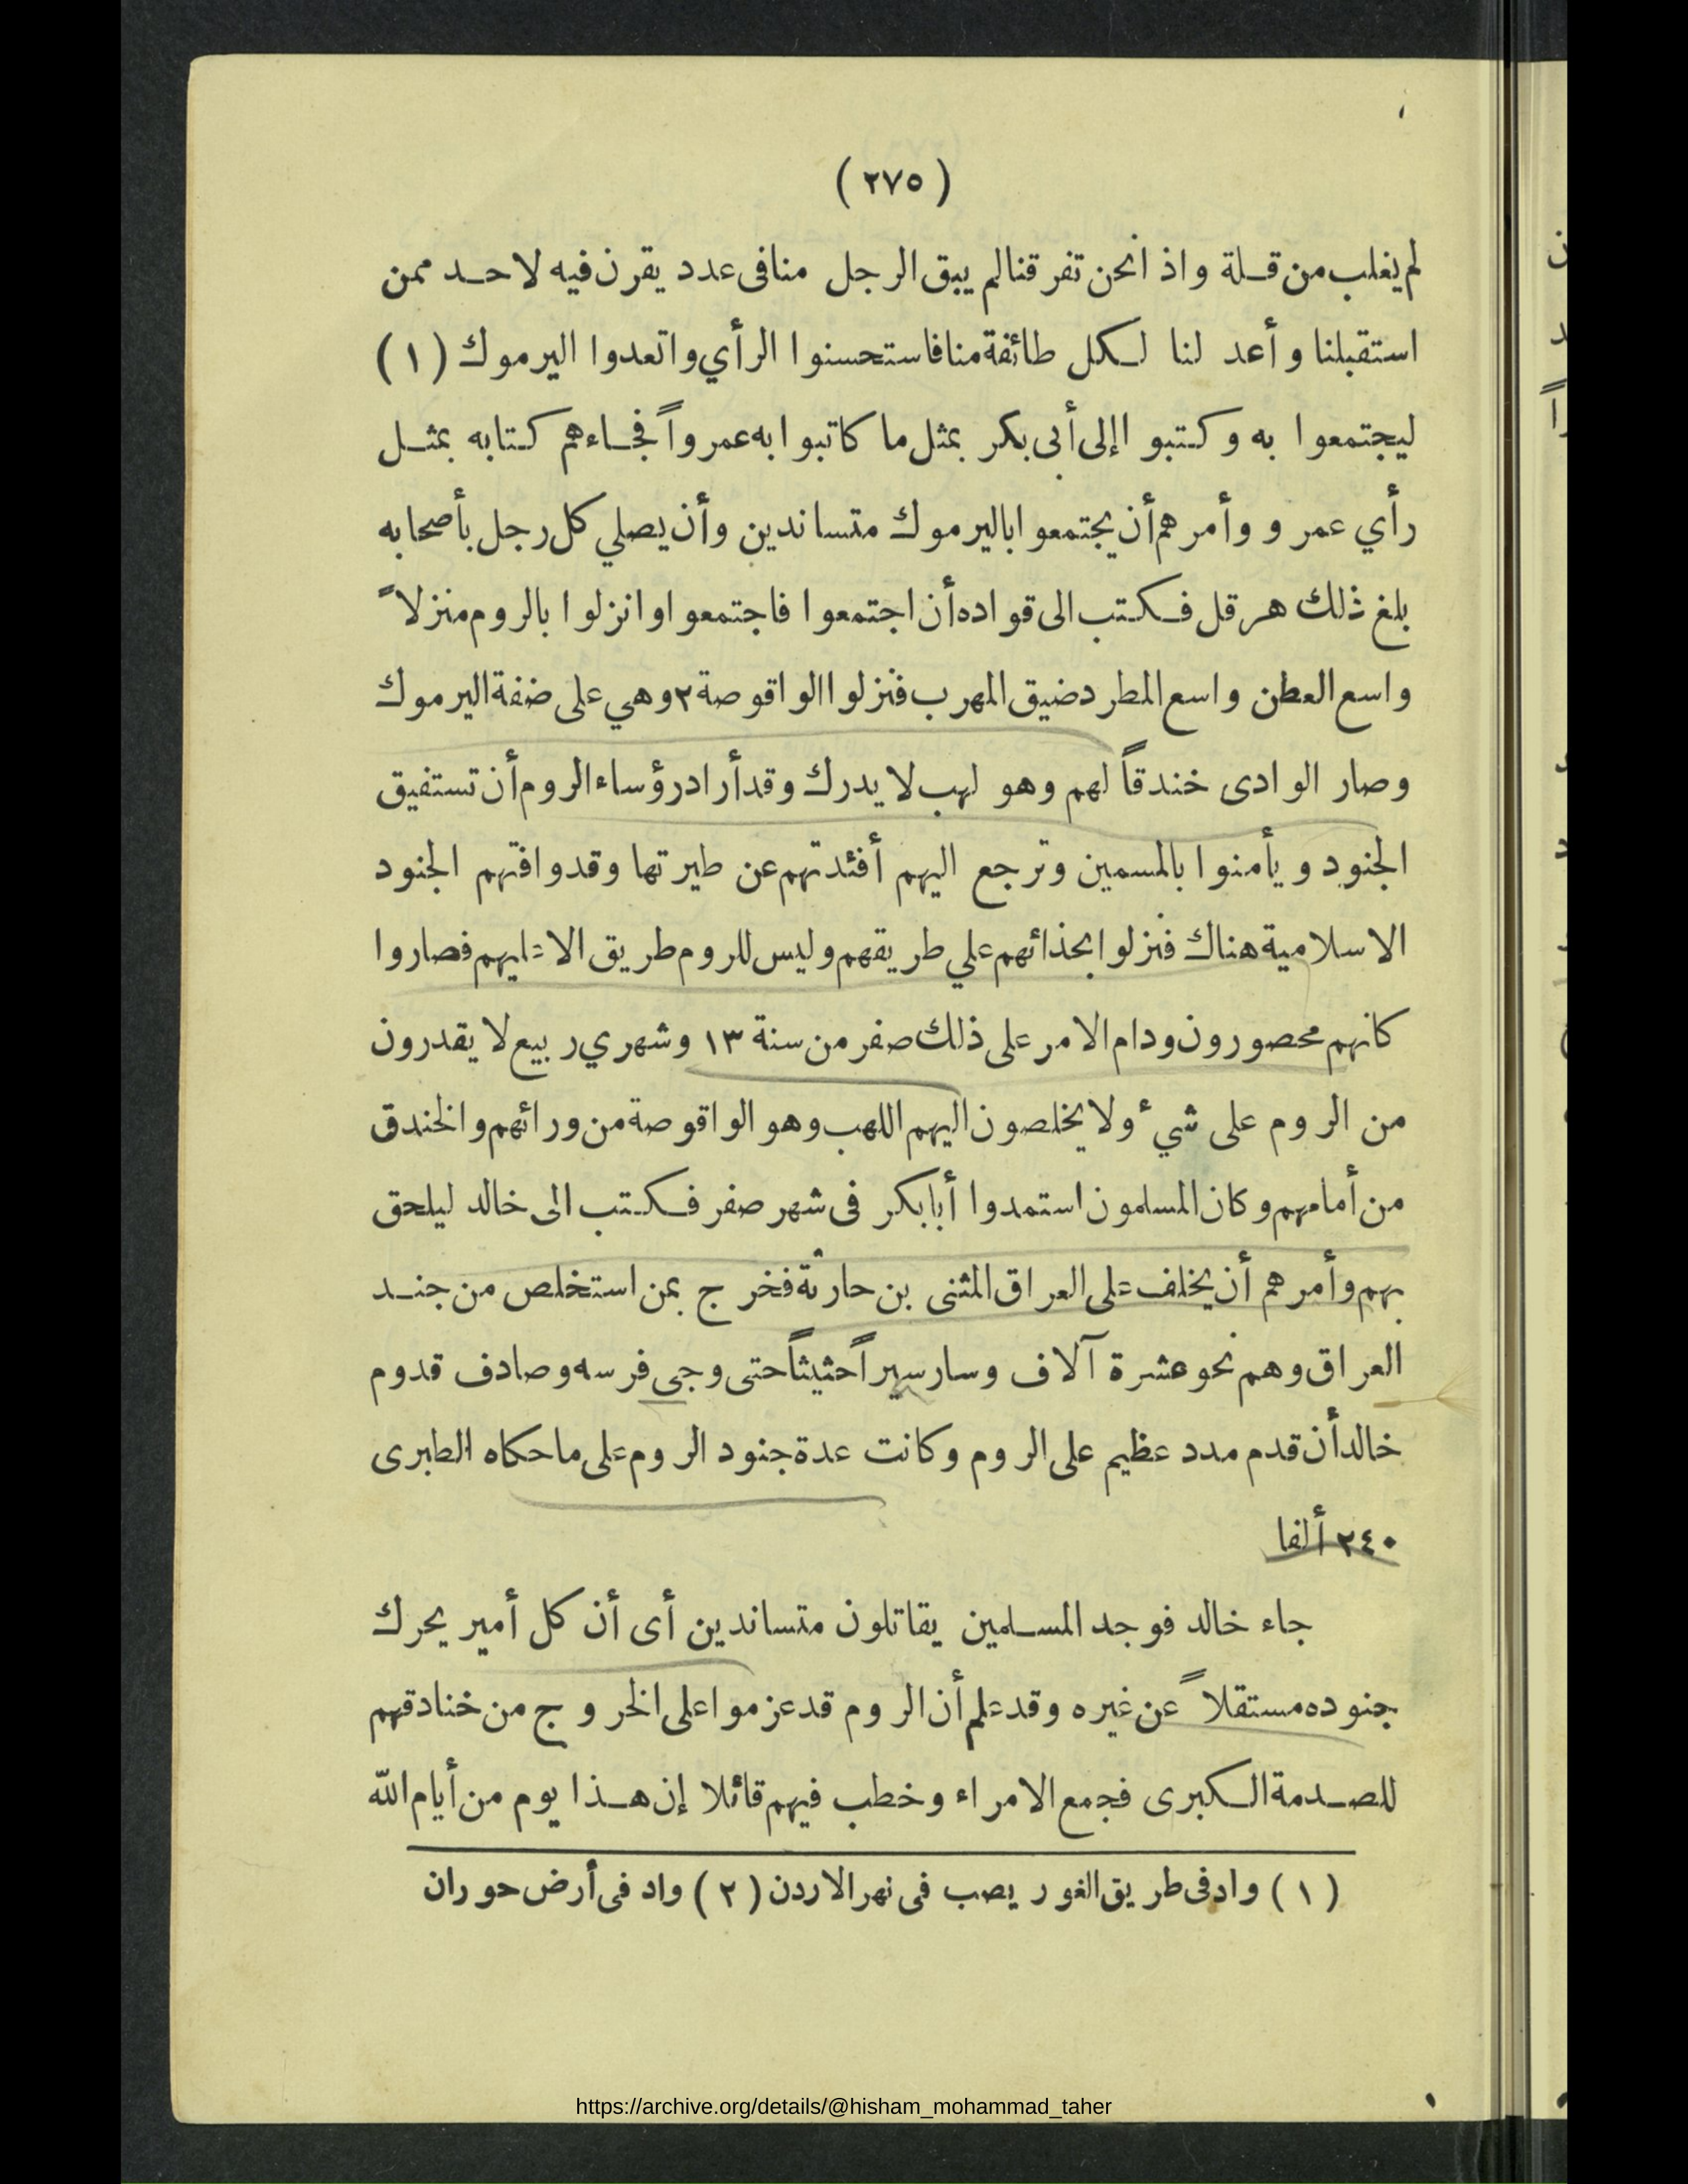 (٢٧٥)
لم يغلب من قلة واذا نحن تفرقنا لم يبق الرجل منا فى عدد يقرن فيه لاحد ممن
استقبلنا وأعد لنا لكل طائفة منا فاستحسنوا الرأي واتعدوا اليرموك (١)
ليجتمعوا به وكتبوا إلى أبى بكر بمثل ما كاتبوا به عمرواً فجاءهم كتابه بمثل
رأي عمرو وأمرهم أن يجتمعوا باليرموك متساندين وأن يصلي كل رجل بأصحابه
بلغ ذلك هرقل فكتب الى قواده أن اجتمعوا فاجتمعوا وانزلوا بالروم منزلاً
واسع العطن واسع المطرد ضيق المهرب فنزلوا الواقوصة ٢ وهي على ضفة اليرموك
وصار الوادى خندقاً لهم وهو لهب لا يدرك وقد أراد رؤساء الروم أن تستفيق
الجنود ويأمنوا بالمسمين وترجع اليهم أفئدتهم عن طيرتها وقد وافتهم الجنود
الاسلامية هناك فنزلوا بحذائهم علي طريقهم وليس للروم طريق الا عليهم فصاروا
كانهم محصورون ودام الامر على ذلك صفر من سنة ١٣ وشهري ربيع لا يقدرون
من الروم على شيء ولا يخلصون اليهم اللهب وهو الواقوصة من ورائهم والخندق
من أمامهم وكان المسلمون استمدوا أبا بكر فى شهر صفر فكتب الى خالد ليلحق
بهم وأمرهم أن يخلف على العراق المثنى بن حارثة فخرج بمن استخلص من جند
العراق وهم نحو عشرة آلاف وسار سيراً حثيثاً حتى وجى فرسه وصادف قدوم
خالد أن قدم مدد عظيم على الروم وكانت عدة جنود الروم على ما حكاه الطبرى
٢٤٠ ألفا
جاء خالد فوجد المسلمين يقاتلون متساندين أى أن كل أمير يحرك
جنوده مستقلاً عن غيره وقد علم أن الروم قد عزموا على الخروج من خنادقهم
للصدمة الكبرى فجمع الامراء وخطب فيهم قائلا إن هذا يوم من أيام الله
(١) واد فى طريق الغور يصب فى نهر الاردن (٢) واد فى أرض حوران
https://archive.org/details/@hisham_mohammad_taher